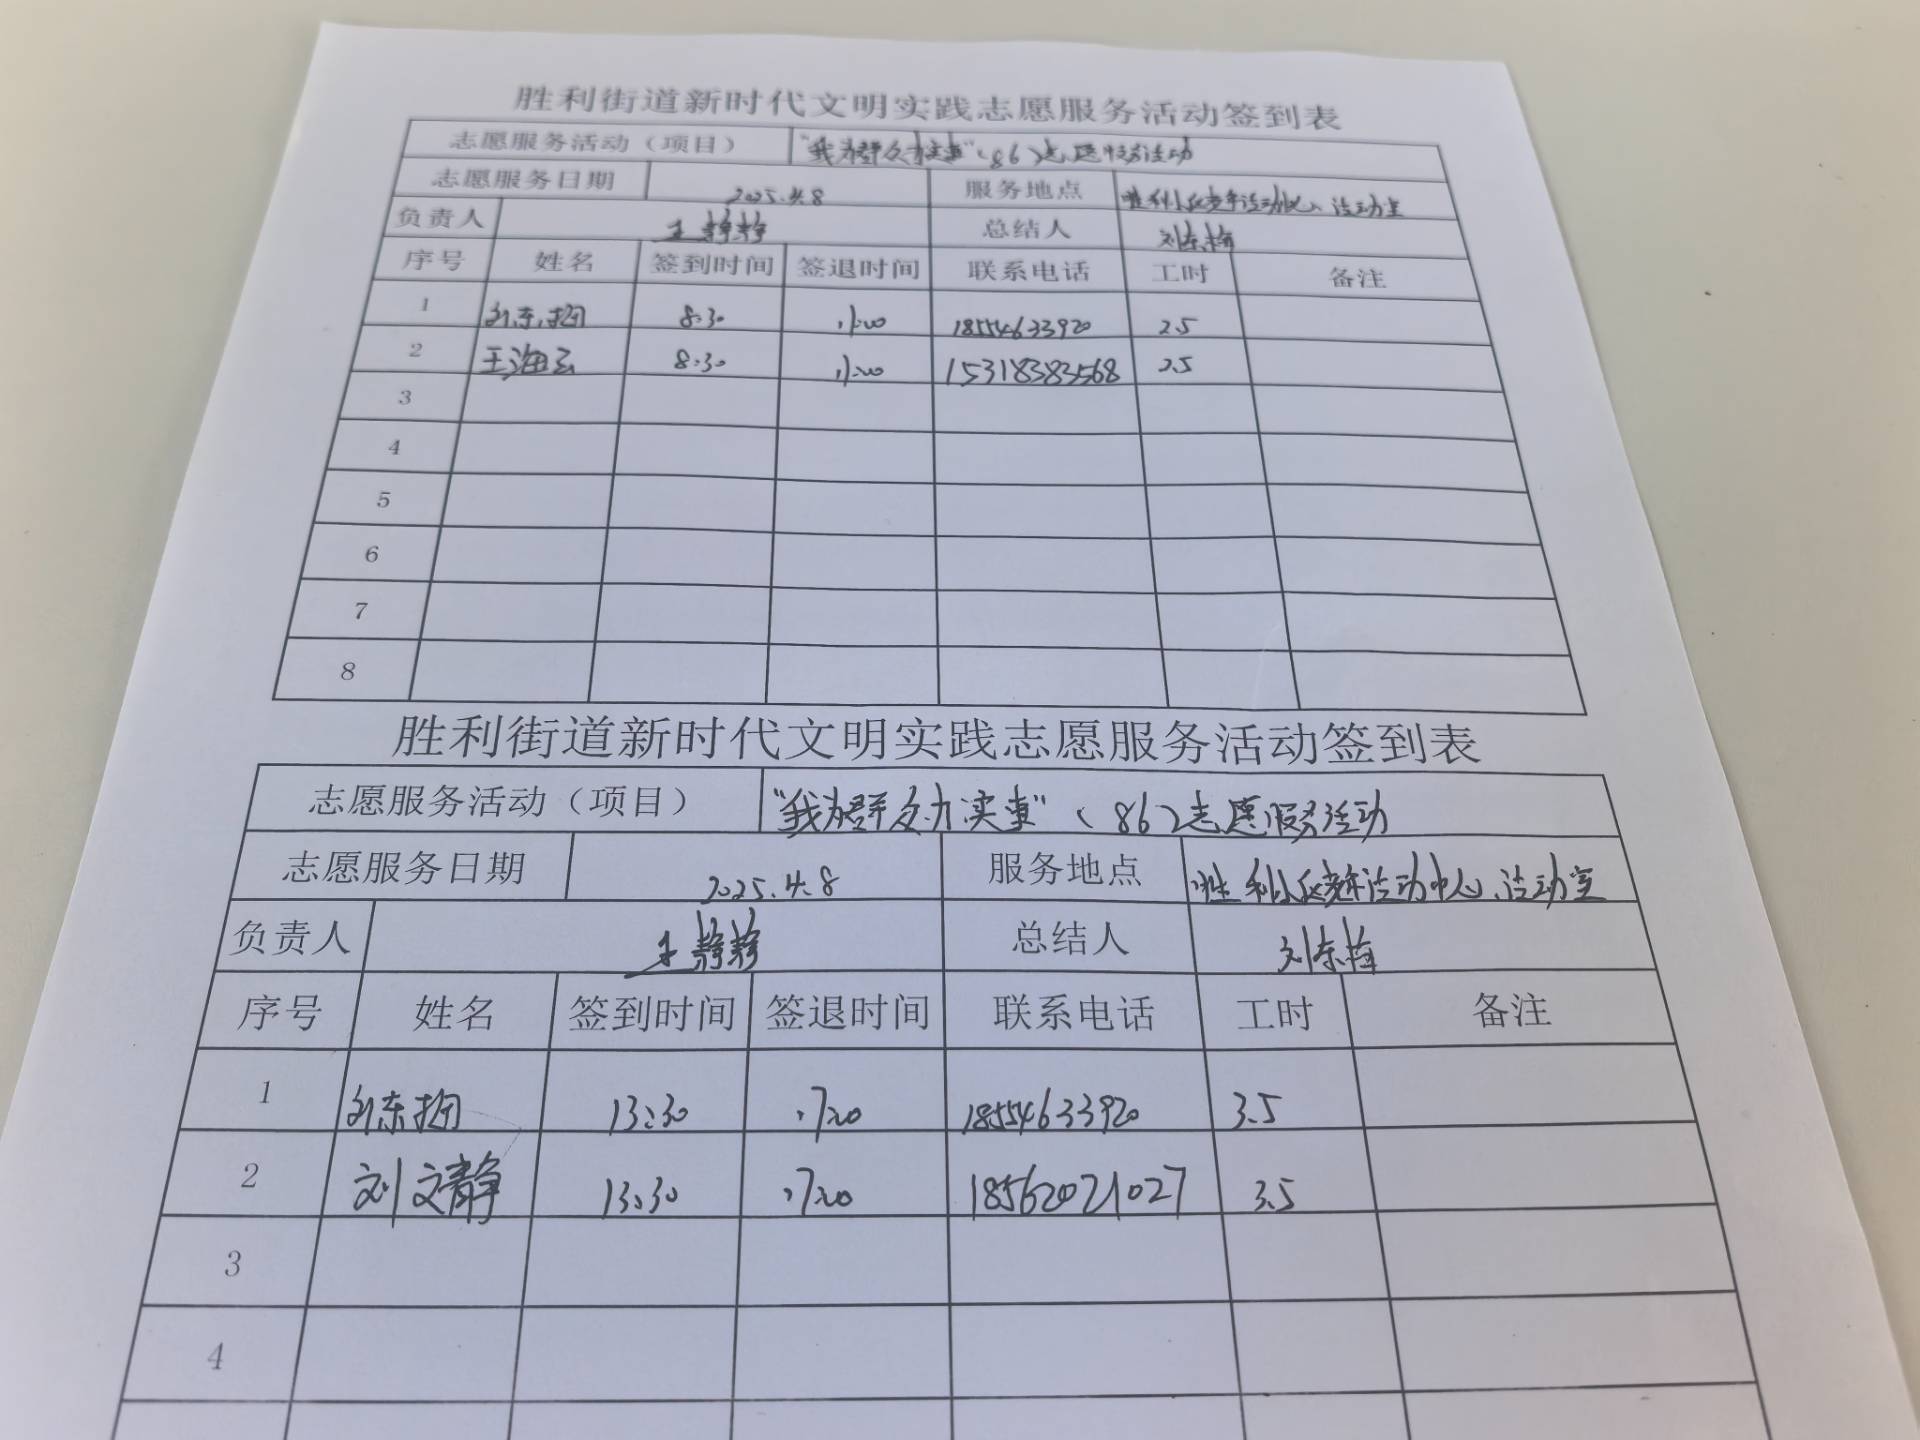 胜利街道新时代文明实践志愿服务活动签到表
志愿服务活动（项目） "我为群众办实事"（86）志愿服务活动
志愿服务日期 2025.4.8 服务地点 胜利小区老年活动中心、活动室
负责人 王静静 总结人 刘东梅
序号 姓名 签到时间 签退时间 联系电话 工时 备注
1 刘东梅 8:30 11:00 18554633920 2.5
2 王海云 8:30 11:00 15318383568 2.5
3
4
5
6
7
8
胜利街道新时代文明实践志愿服务活动签到表
志愿服务活动（项目） "我为群众办实事"（86）志愿服务活动
志愿服务日期 2025.4.8 服务地点 胜利小区老年活动中心、活动室
负责人 王静静 总结人 刘东梅
序号 姓名 签到时间 签退时间 联系电话 工时 备注
1 刘东梅 13:30 17:00 18554633920 3.5
2 刘文静 13:30 17:00 18562021027 3.5
3
4